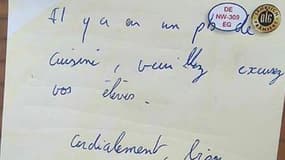 Il y a eu un pb de
cuisine, veuillez excusez
vos élèves.
Cordialement,
DE
NW-309
EG